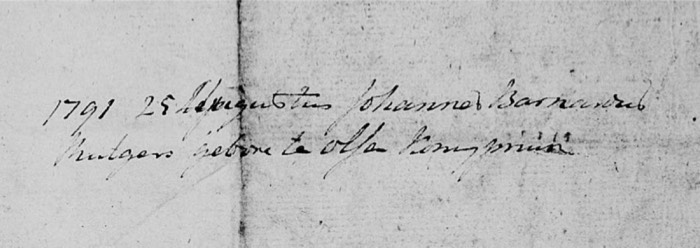 1791 25 Augustus Johannes Barnardus
Rutgers gebore te olst